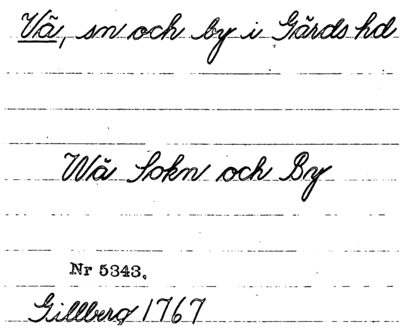 Vä, sn och by i Gärds hd
Wä Sokn och By
Nr 5343.
Gillberg 1767